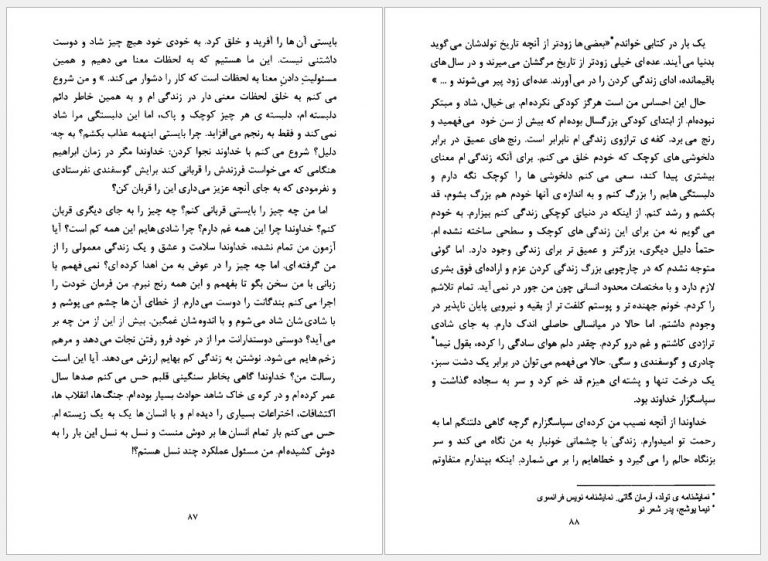 بایستی آن ها را آفرید و خلق کرد. به خودی خود هیچ چیز شاد و دوست
داشتنی نیست. این ما هستیم که به لحظات معنا می دهیم و همین
مسئولیتِ دادنِ معنا به لحظات است که کار را دشوار می کند. » و من شروع
می کنم به خلق لحظات معنی دار در زندگی ام و به همین خاطر دائم
دلبسته ام، دلبسته ی هر چیز کوچک و پاک، اما این دلبستگی مرا شاد
نمی کند و فقط به رنجم می افزاید. چرا بایستی اینهمه عذاب بکشم؟ به چه-
دلیل؟ شروع می کنم با خداوند نجوا کردن: خداوندا مگر در زمان ابراهیم
هنگامی که می خواست فرزندش را قربانی کند برایش گوسفندی نفرستادی
و نفرمودی که به جای آنچه عزیز می داری این را قربان کن؟
اما من چه چیز را بایستی قربانی کنم؟ چه چیز را به جای دیگری قربان
کنم؟ خداوندا چرا این همه غم دارم؟ چرا شادی هایم این همه کم است؟ آیا
آزمون من تمام نشده، خداوندا سلامت و عشق و یک زندگی معمولی را از
من گرفته ای. اما چه چیز را در عوض به من اهدا کرده ای؟ نمی فهمم با
زبانی با من سخن بگو تا بفهمم و این همه رنج نبرم. من فرمان خودت را
اجرا می کنم بندگانت را دوست می دارم. از خطای آن ها چشم می پوشم و
با شادی شان شاد می شوم و با اندوه شان غمگین. بیش از این از من چه بر
می آید؟ دوستی دوستدارانت مرا از در خود فرو رفتن نجات می دهد و مرهم
زخم هایم می شود. نوشتن به زندگی کم بهایم ارزش می دهد. آیا این است
رسالت من؟ خداوندا گاهی بخاطر سنگینی قلبم حس می کنم صدها سال
عمر کرده ام و در کره ی خاک شاهد حوادث بسیار بوده ام. جنگ ها، انقلاب ها،
اکتشافات، اختراعات بسیاری را دیده ام و با انسان ها یک به یک زیسته ام.
حس می کنم بار تمام انسان ها بر دوش منست و نسل به نسل این بار را به
دوش کشیده ام. من مسئول عملکرد چند نسل هستم؟!
۸۷
یک بار در کتابی خواندم*«بعضی ها زودتر از آنچه تاریخ تولدشان می گوید
بدنیا می آیند. عده ای خیلی زودتر از تاریخ مرگشان می میرند و در سال های
باقیمانده، ادای زندگی کردن را در می آورند. عده ای زود پیر می شوند و ... »
حال این احساس من است هرگز کودکی نکرده ام. بی خیال، شاد و مبتکر
نبوده ام. از ابتدای کودکی بزرگسال بوده ام که بیش از سن خود می فهمید و
رنج می برد. کفه ی ترازوی زندگی ام نابرابر است. رنج های عمیق در برابر
دلخوشی های کوچک که خودم خلق می کنم. برای آنکه زندگی ام معنای
بیشتری پیدا کند، سعی می کنم دلخوشی ها را کوچک نگه دارم و
دلبستگی هایم را بزرگ کنم و به اندازه ی آنها خودم هم بزرگ بشوم، قد
بکشم و رشد کنم. از اینکه در دنیای کوچکی زندگی کنم بیزارم. به خودم
می گویم نه من برای این زندگی های کوچک و سطحی ساخته نشده ام.
حتماً دلیل دیگری، بزرگتر و عمیق تر برای زندگی وجود دارد. اما گوئی
متوجه نشدم که در چارچوبی بزرگ زندگی کردن عزم و اراده ای فوق بشری
لازم دارد و با مختصات محدود انسانی چون من جور در نمی آید. تمام تلاشم
را کردم. خونم جهنده تر و پوستم کلفت تر از بقیه و نیرویی پایان ناپذیر در
وجودم داشتم. اما حالا در میانسالی حاصلی اندک دارم. به جای شادی
تراژدی کاشتم و غم درو کردم. چقدر دلم هوای سادگی را کرده، بقول نیما*
چادری و گوسفندی و سگی. حالا می فهمم می توان در برابر یک دشت سبز،
یک درخت تنها و پشته ای هیزم قد خم کرد و سر به سجاده گذاشت و
سپاسگزار خداوند بود.
خداوندا از آنچه نصیب من کرده ای سپاسگزارم گرچه گاهی دلتنگم اما به
رحمت تو امیدوارم. زندگی با چشمانی خونبار به من نگاه می کند و سر
بزنگاه حالم را می گیرد و خطاهایم را بر می شمارد. اینکه بپندارم متفاوتم
* نمایشنامه ی تولد، آرمان گاتی. نمایشنامه نویس فرانسوی
* نیما یوشج، پدر شعر نو
۸۸